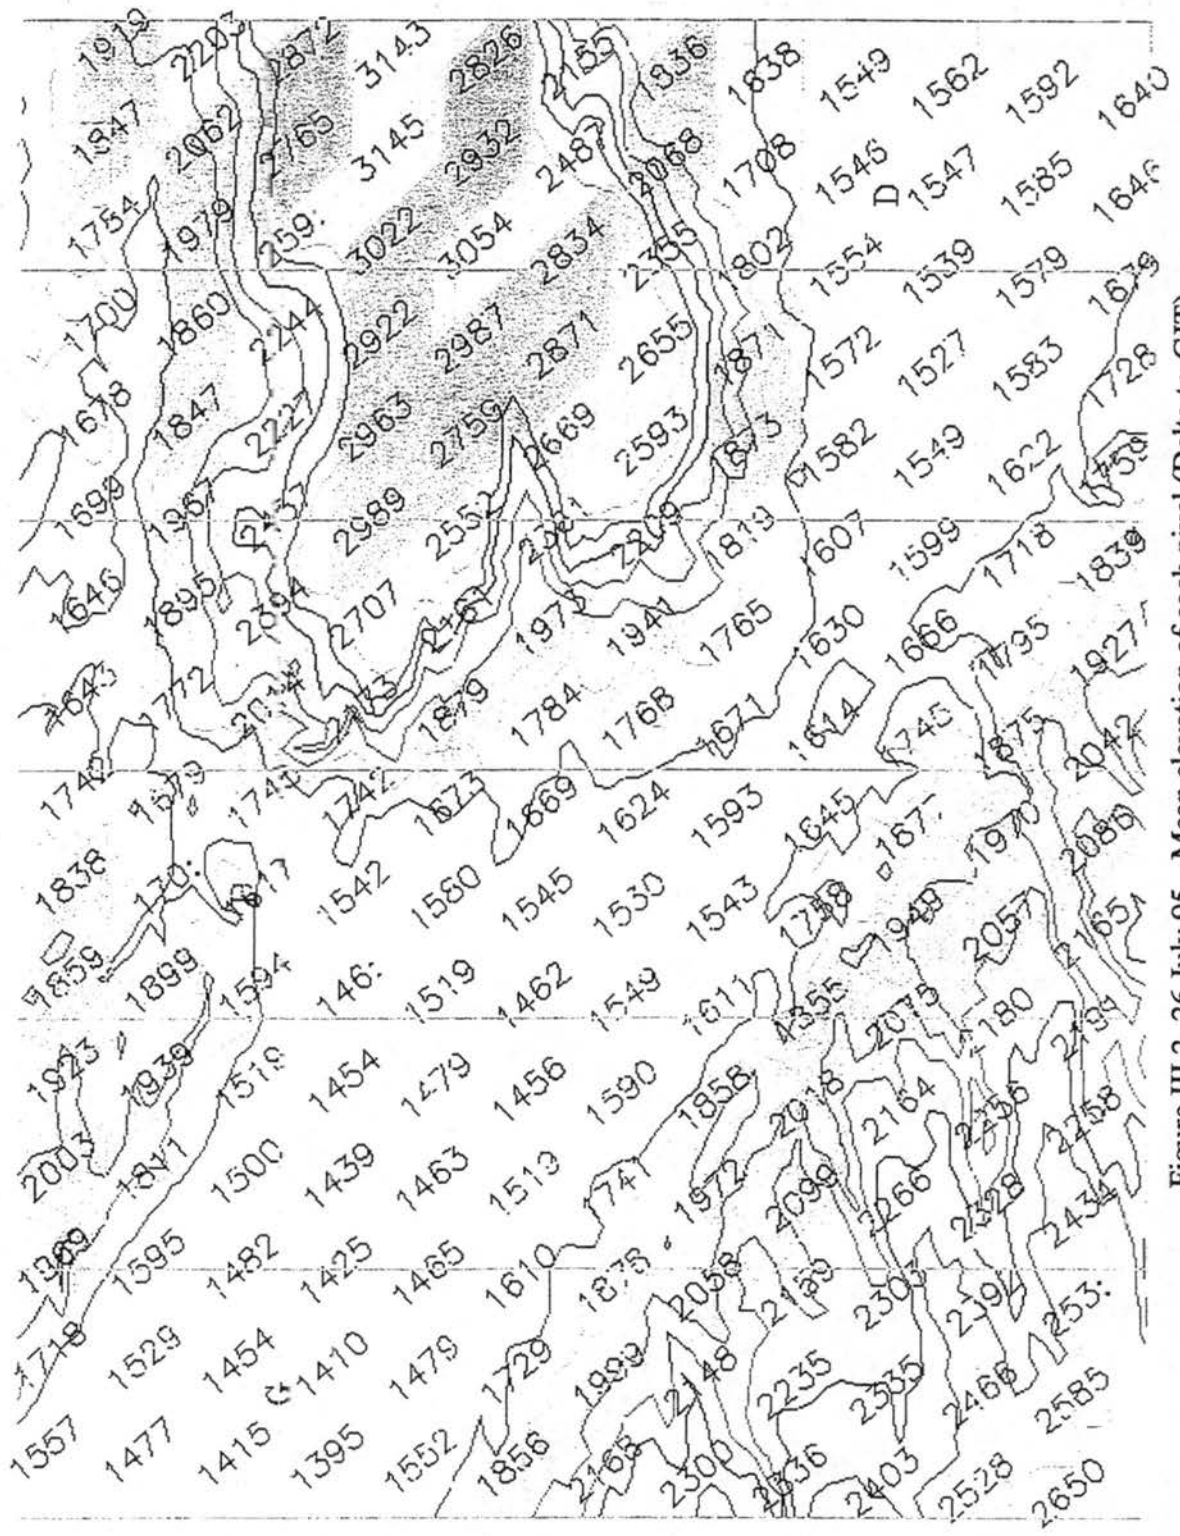 1919 2203 2872 3143 2826 2155 1836 1638 1549 1562 1592 1640
1847 2062 2765 3145 2932 2068 1708 1546 1547 1585 1646
D
1754 1979 3022 3054 2834 2355 1802 1554 1539 1579 1679
1700 1860 2244 2922 2987 2871 2655 1871 1572 1527 1583 1728
1678 1847 2227 2963 2759 2669 2593 1873 1582 1549 1622
1699 1967 2989 2552 2209 1819 1607 1599 1718 1839
1646 1895 2394 2707 1973 1941 1765 1630 1666 1795 1927
1643 1772 1879 1784 1768 1671 1614 1745 1875 2042
1740 1679 1741 1742 1673 1669 1624 1593 1645 1970 2086
1838 1542 1580 1545 1530 1543 1758 1949 2057 2165
1859 1899 1594 1519 1462 1549 1611 2075 2180 2191
1923 1939 1519 1454 1479 1456 1590 1858 2018 2164 2256 2258
2003 1811 1500 1439 1463 1519 1741 1972 2099 2266 2328 2434
1595 1482 1425 1465 1610 1878 2058 2159 2303 2392
1718 1529 1454 1410 1479 1729 1999 2148 2235 2335 2466 2585
1557 1477 1415 1395 1552 1856 2168 2300 2336 2403 2528 2650